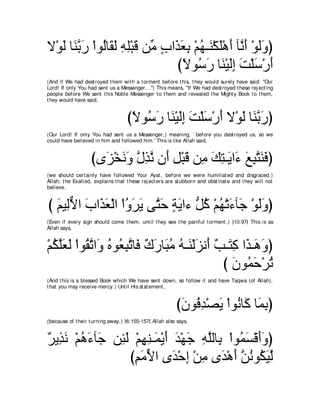 (وَلَوْ أَنَّآ أَهْلَكْنَـهُمْ بِعَذَابٍ مِّن قَبْلِهِ لَقَالُواْ رَبَّنَا لَوْلا
أَرْسَلْتَ إِلَيْنَا رَسُولاً)
(And if We had destroyed them with a torment before this, they would surely have said: "Our
Lord! If only You had sent us a Messenger...") This means, "If We had destroyed these rejecting
people before We sent this Noble Messenger to them and revealed the Mighty Book to them,
they would have said,
(رَبَّنَا لَوْلا أَرْسَلْتَ إِلَيْنَا رَسُولاً)
(Our Lord! If only You had sent us a Messenger,) meaning, `before you destroyed us, so we
could have believed in him and followed him.' This is like Allah said,
(فَنَتَّبِعَ ءَايَـتِكَ مِن قَبْلِ أَن نَّذِلَّ وَنَخْزَى)
(we should certainly have followed Your Ayat, before we were humiliated and disgraced.)
Allah, the Exalted, explains that these rejecters are stubborn and obstinate and they will not
believe.
(وَلَوْ جَآءَتْهُمْ كُلُّ ءايَةٍ حَتَّى يَرَوُاْ الْعَذَابَ الاٌّلِيمَ )
(Even if every sign should come them, until they see the painful torment.) )10:97( This is as
Allah says,
(وَهَـذَا كِتَـبٌ أَنزَلْنَـهُ مُبَارَكٌ فَاتَّبِعُوهُ وَاتَّقُواْ لَعَلَّكُمْ
تُرْحَمُونَ )
(And this is a blessed Book which We have sent down, so follow it and have Taqwa (of Allah),
that you may receive mercy.) Until His statement,
(بِمَا كَانُواْ يَصْدِفُونَ)
(because of their turning away.) )6:155-157( Allah also says,
(وَأَقْسَمُواْ بِاللَّهِ جَهْدَ أَيْمَـنِهِمْ لَئِن جَآءَهُمْ نَذِيرٌ
لَّيَكُونُنَّ أَهْدَى مِنْ إِحْدَى الاٍّمَمِ)